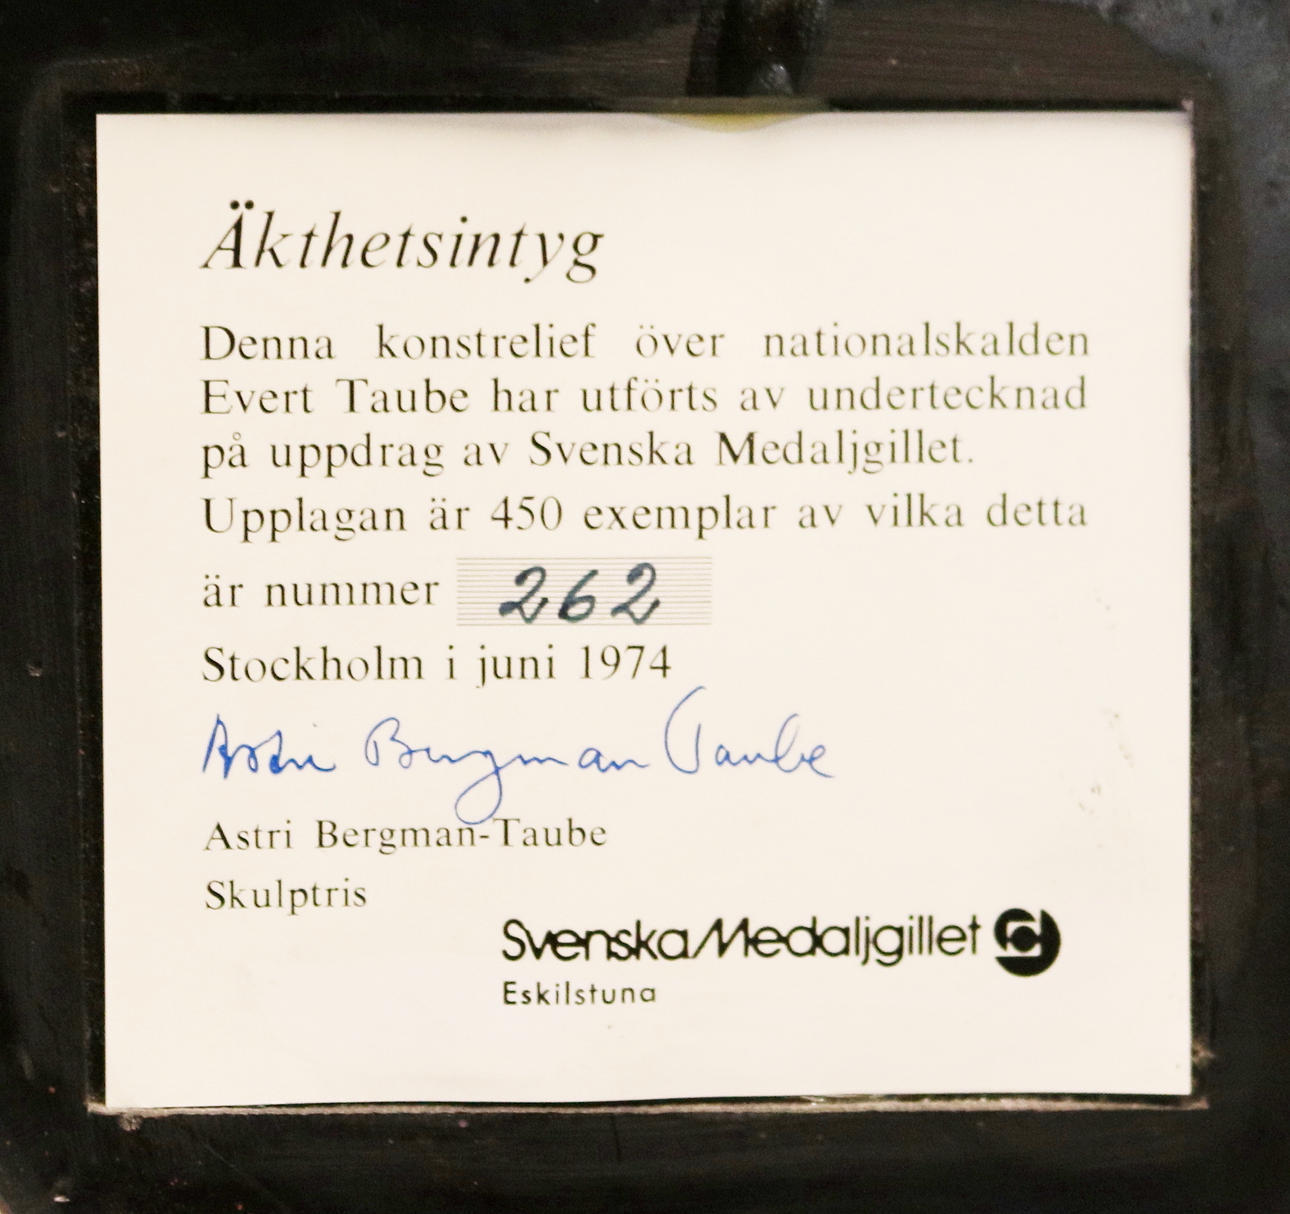 Äkthetsintyg
Denna konstrelief över nationalskalden
Evert Taube har utförts av undertecknad
på uppdrag av Svenska Medaljgillet.
Upplagan är 450 exemplar av vilka detta
är nummer 262
Stockholm i juni 1974
Astri Bergman Taube
Astri Bergman-Taube
Skulptris
Svenska Medaljgillet
Eskilstuna